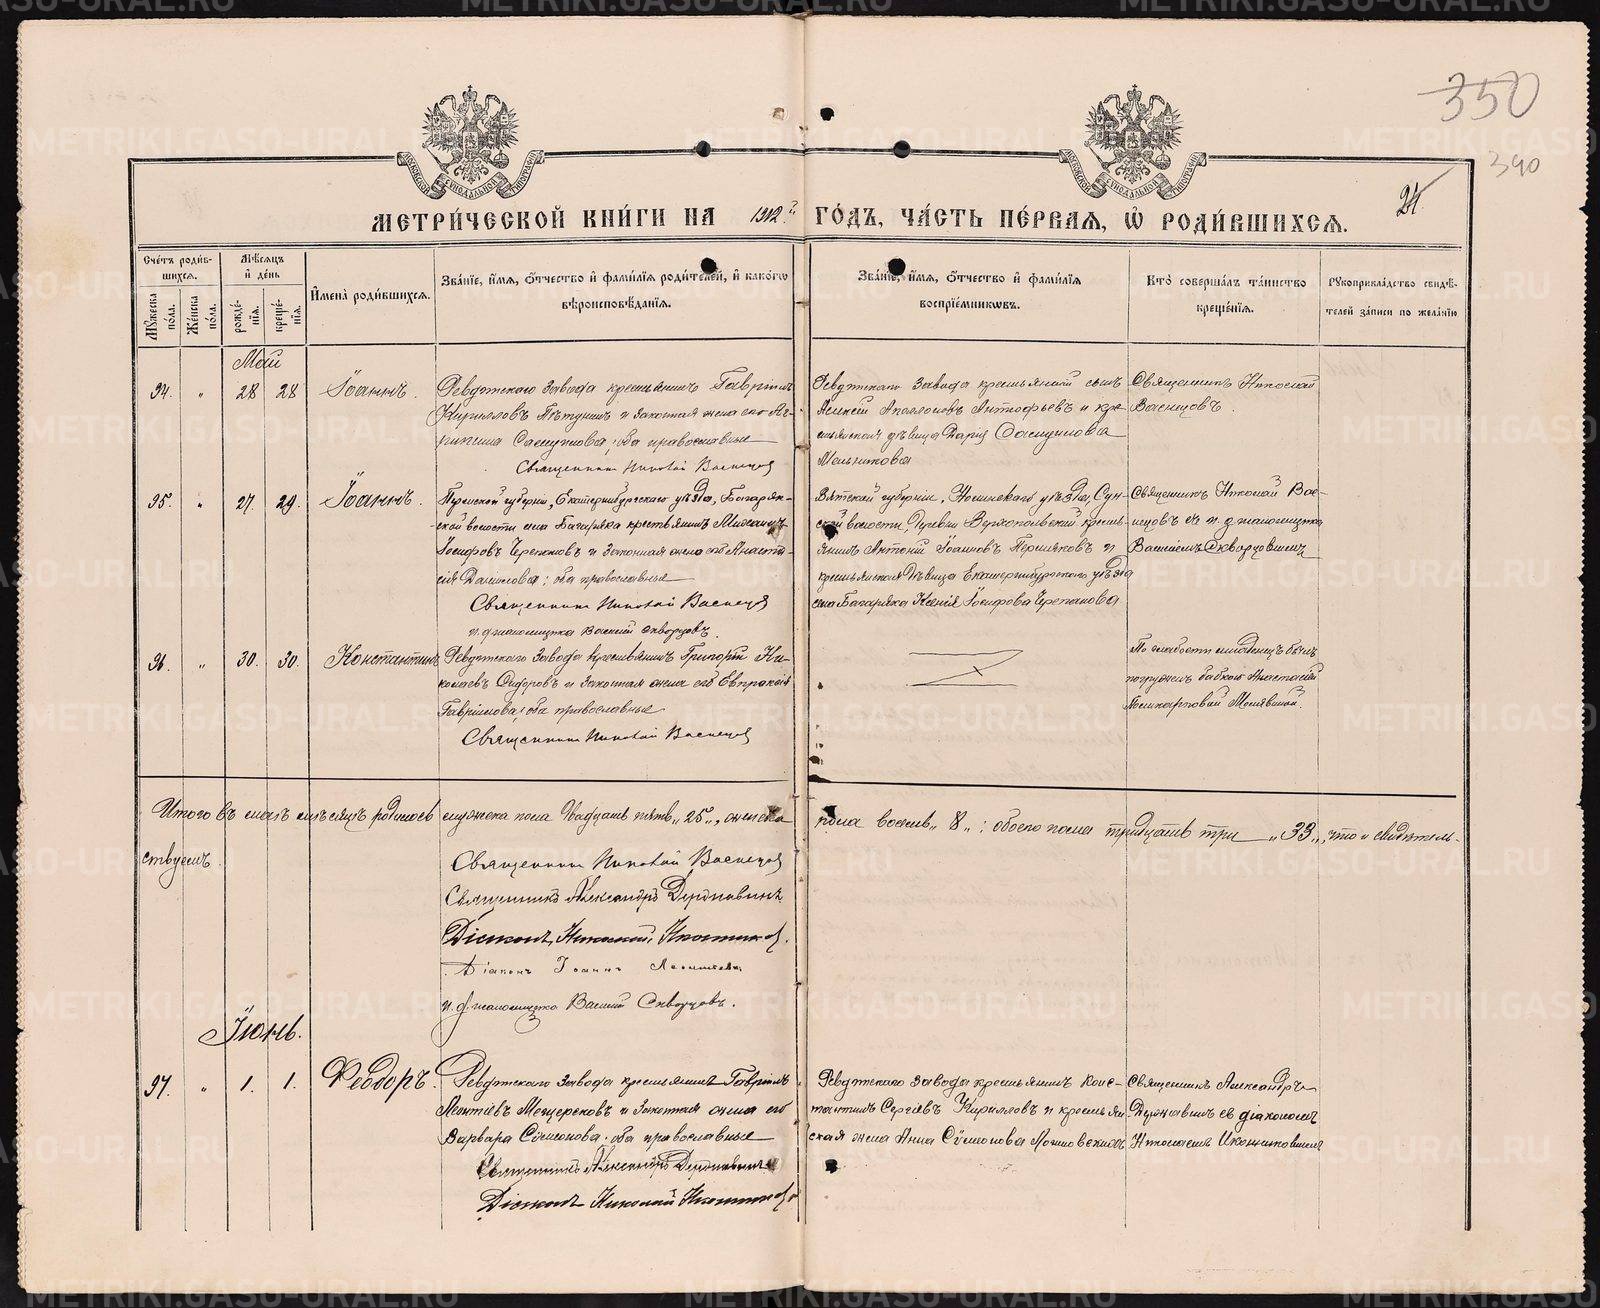 350
340
24
МЕТРИ́ЧЕСКОЙ КНИ́ГИ НА 1912 й ГО́ДЪ, ЧА́СТЬ ПЕ́РВАЯ, Ѡ РОДИ́ВШИХСЯ.
Сче́тъ роди́вшихся.
Му́жеска по́ла.
Же́нска по́ла.
Мѣ́сяцъ и де́нь
рожде́нія.
креще́нія.
И҆мена̀ роди́вшихся.
Зва́ніе, и҆́мя, ѻ҆́тчество и҆ фами́лія роди́телей, и҆ како́гѡ
вѣроисповѣ́данія.
Зва́ніе, и҆́мя, ѻ҆́тчество и҆ фами́лія
воспріе́мникѡвъ.
Кто̀ соверша́лъ та́инство
креще́нія.
Рꙋкоприкла́дство свидѣ́-
телей за́писи по жела́нію
Май
94. " 28 28 Іоаннъ.
Ревдтскаго завода крестьянинъ Гавріилъ
Кирилловъ Пѣтушинъ и законная жена его Аг-
рипина Самуилова; оба православные
Священникъ Николай Васнецовъ
Ревдтскаго Завода крестьянскій сынъ
Алексій Аполлосовъ Антифьевъ и кре-
стьянская дѣвица Дарія Самуилова
Мельникова
Священникъ Николай
Васнецовъ.
95. " 27. 29. Іоаннъ.
Пермской губерніи, Екатеринбургскаго уѣзда, Багаряк-
ской волости села Багаряка крестьянинъ Михаилъ
Іосифовъ Черепановъ и законная жена его Анаста-
сія Данилова; оба православные
Священникъ Николай Васнецовъ
и. д. псаломщика Василій Скворцовъ.
Вятской губерніи, Нолинскаго уѣзда, Сун-
ской волости, Деревни крестья-
янинъ Антоній Іоанновъ Перминовъ и
крестьянская дѣвица Екатеринбургскаго уѣзда
села Багаряка Ксенія Іосифова Черепанова
Священникъ Николай Вас-
нецовъ съ и. д. псаломщика
Василіемъ Скворцовымъ
96. " 30. 30. Константинъ
Ревдтскаго Завода крестьянинъ Григорій Ни-
колаевъ Сидоровъ и законная жена его Евпраксія
Гавриилова; оба православные
Священникъ Николай Васнецовъ
По слабости младенецъ былъ
погруженъ бабкою Анастасіей
Поликарповой
Итого въ маѣ мѣсяцѣ родилось мужеска пола двадцать пять „25", женска пола восемь „8"; обоего пола тридцать три „33", что и свидѣтель-
ствуемъ.
Священникъ Николай Васнецовъ
Священникъ Александръ Державинъ
Діаконъ Николай Иконниковъ.
Діаконъ Іоаннъ
и. д. псаломщика Василій Скворцовъ.
Іюнь.
97. " 1. 1. Ѳеодоръ.
Ревдтскаго Завода крестьянинъ Гавріилъ
Леонтіевъ Мещеряковъ и законная жена его
Варвара Сѵмеонова; оба православные
Священникъ Александръ Державинъ
Діаконъ Николай Иконниковъ
Ревдтскаго Завода крестьянинъ Конс-
тантинъ Сергіевъ Кирилловъ и крестьян-
ская жена Анна Сѵмеонова
Священникъ Александръ
Державинъ съ діакономъ
Николаемъ Иконниковымъ
METRIKI.GASO-URAL.RU